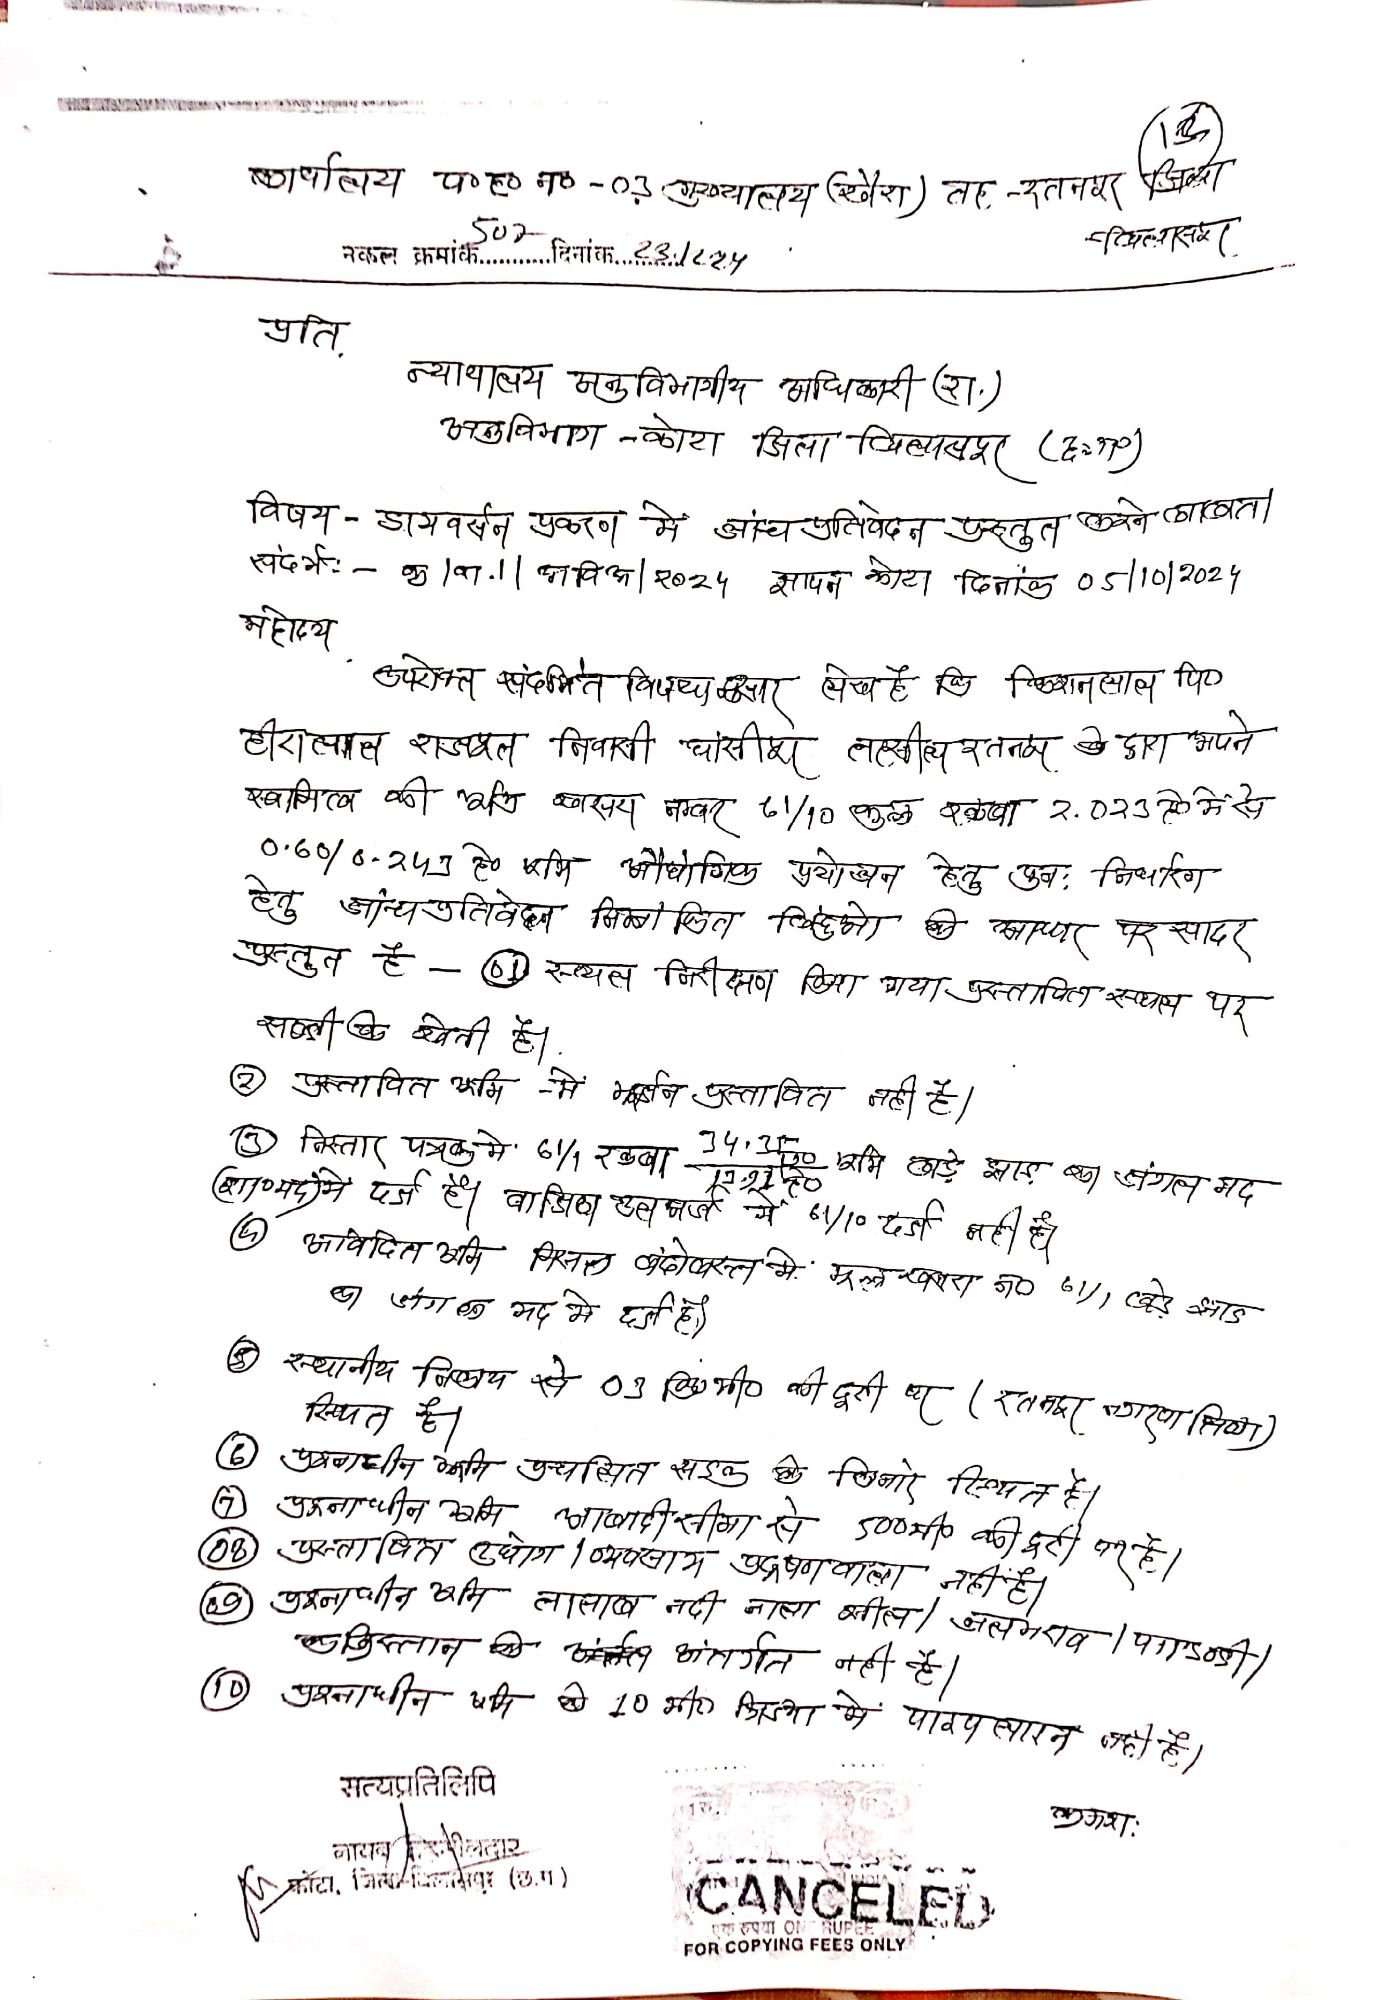 कार्यालय प०ह०न० -03 मुख्यालय (खैरा) तह. -रतनपुर जिला
बिलासपुर
नकल क्रमांक 502 दिनांक 23/12/24
प्रति,
न्यायालय अनुविभागीय अधिकारी (रा.)
अनुविभाग -कोटा जिला बिलासपुर (छ०ग०)
विषय - डायवर्सन प्रकरण में जांच प्रतिवेदन प्रस्तुत करने बाबत।
संदर्भ: - क्र/वा.1/अविअ/2024 ज्ञापन कोटा दिनांक 05/10/2024
महोदय,
उपरोक्त संदर्भित विषयानुसार लेख है कि किशनलाल पि०
हीरालाल निवासी घांसीपुर तहसील रतनपुर के द्वारा अपने
स्वामित्व की भूमि खसरा नम्बर 61/10 कुल रकबा 2.023 हे० में से
0.60/0.243 हे० भूमि औद्योगिक प्रयोजन हेतु पुन: निर्धारण
हेतु जांच प्रतिवेदन निम्नांकित बिंदुओ के आधार पर सादर
प्रस्तुत है - 01 स्थल निरीक्षण किया गया प्रस्तावित स्थल पर
सब्जी के खेती है।
2 प्रस्तावित भूमि में भूअर्जन प्रस्तावित नही है।
3 निस्तार पत्रक में 61/1 रकबा भूमि बड़े झाड़ का जंगल मद
(शा०मद) में दर्ज है। वाजिब उल अर्ज में 61/10 दर्ज नही है।
4 आवेदित भूमि मिसल बंदोबस्त में मूल खसरा न० 61/1 बड़े झाड
का जंगल मद मे दर्ज है।
5 स्थानीय निकाय से 03 कि०मी० की दूरी पर (रतनपुर नगरपालिका)
स्थित है।
6 प्रश्नाधीन भूमि प्रचलित सड़क के किनारे स्थित है।
7 प्रश्नाधीन भूमि आबादी सीमा से 500मी० की दूरी पर है।
08 प्रस्तावित उद्योग/व्यवसाय प्रदूषणवाला नहीं है।
09 प्रश्नाधीन भूमि तालाब नदी नाला झील/जलभराव/पगडण्डी/
कब्रिस्तान के अंतर्गत नही है।
10 प्रश्नाधीन भूमि के 10 मी० त्रिज्या में पारेषण लाइन नही है।
क्रमश:
सत्यप्रतिलिपि
नायब तहसीलदार
कोटा, जिला-बिलासपुर (छ.ग)
CANCELED
एक रुपया ONE RUPEE
FOR COPYING FEES ONLY